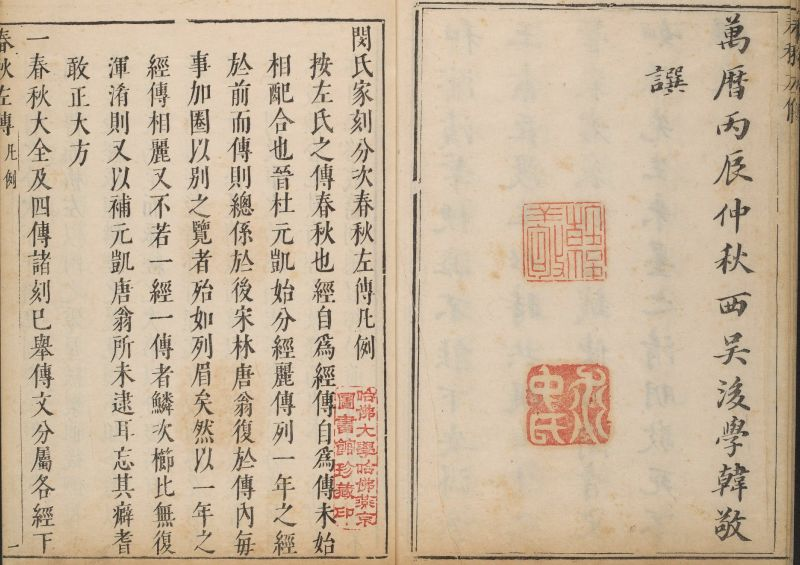 萬曆丙辰仲秋西吴後學韓敬
譔
閔氏家刻分次春秋左傳凡例
按左氏之傳春秋也經自爲經傳自爲傳未始
相配合也晉杜元凱始分經麗傳列一年之經
於前而傳則總係於後宋林唐翁復於傳內每
事加圈以别之覽者殆如列眉矣然以一年之
經傳相麗又不若一經一傳者鱗次櫛比無復
渾淆則又以補元凱唐翁所未逮耳忘其癖耆
敢正大方
一春秋大全及四傳諸刻已舉傳文分屬各經下
春秋左傳 凡例
一
哈佛大學哈佛燕京
圖書館珍藏印